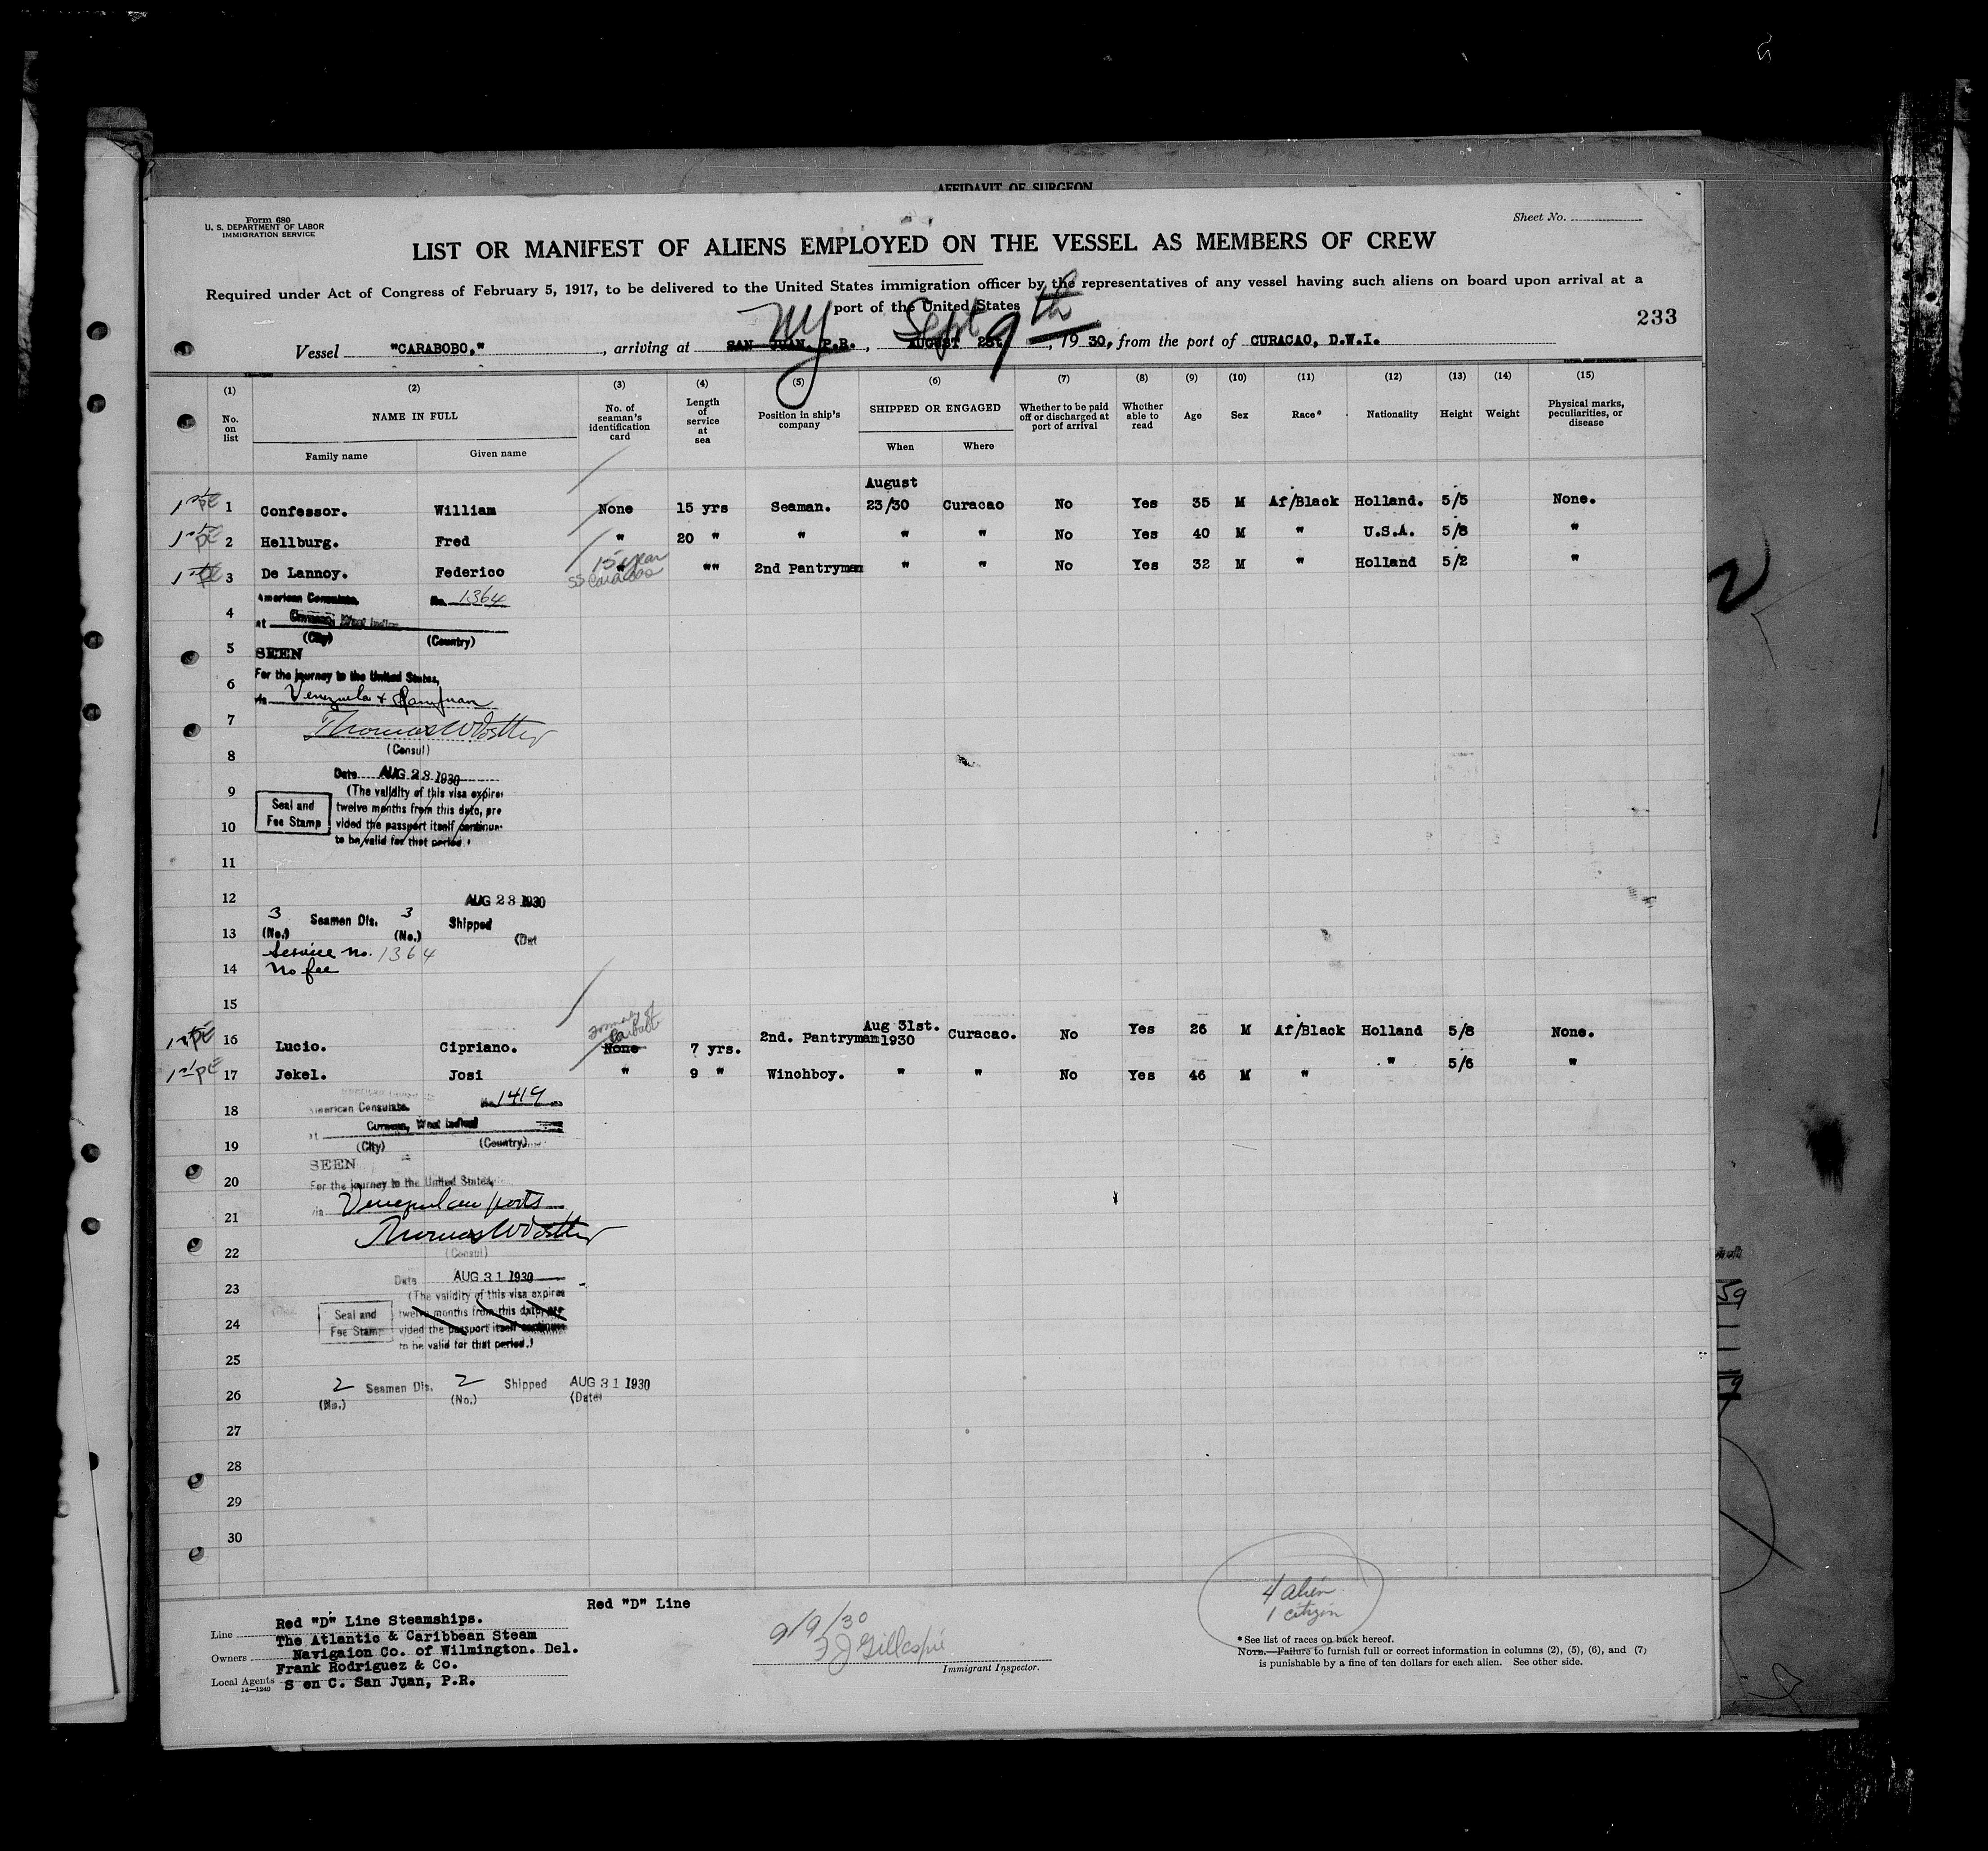 AFFIDAVIT OF SURGEON
Form 680
U. S. DEPARTMENT OF LABOR
IMMIGRATION SERVICE
Sheet No.
LIST OR MANIFEST OF ALIENS EMPLOYED ON THE VESSEL AS MEMBERS OF CREW
Required under Act of Congress of February 5, 1917, to be delivered to the United States immigration officer by the representatives of any vessel having such aliens on board upon arrival at a
port of the United States
233
NY Sept 9th
Vessel "CARABOBO," , arriving at SAN JUAN. P.R. , AUGUST , 19 30, from the port of CURACAO, D.W.I.
(1) (2) (3) (4) (5) (6) (7) (8) (9) (10) (11) (12) (13) (14) (15)
No. on list NAME IN FULL No. of seaman's identification card Length of service at sea Position in ship's company SHIPPED OR ENGAGED Whether to be paid off or discharged at port of arrival Whether able to read Age Sex Race* Nationality Height Weight Physical marks, peculiarities, or disease
Family name Given name When Where
August
1 Confessor. William None 15 yrs Seaman. 23/30 Curacao No Yes 35 M Af/Black Holland. 5/5 None.
2 Hellburg. Fred " 20 " " " " No Yes 40 M " U.S.A. 5/8 "
15 year
3 De Lannoy. Federico " "" 2nd Pantryman " " No Yes 32 M " Holland 5/2 "
SS Carabobo
American Consulate, No. 1364
4
at Curacao, West Indies
(City) (Country)
5 SEEN
For the journey to the United States,
6
via Venezuela & San Juan
7
(Consul)
8
Date AUG 23 1930
9 (The validity of this visa expires
Seal and twelve months from this date, pro
Fee Stamp vided the passport itself continues
10
to be valid for that period.)
11
12 AUG 23 1930
3 Seamen Dis. 3 Shipped
13 (No.) (No.) (Dat
Service no. 1364
14 No fee
15
formerly of
16 Lucio. Cipriano. None 7 yrs. 2nd. Pantryman Aug 31st. 1930 Curacao. No Yes 26 M Af/Black Holland 5/8 None.
17 Jekel. Josi " 9 " Winchboy. " " No Yes 46 M " " 5/6 "
18 American Consulate. No. 1419
at Curacao, West Indies
19 (City) (Country)
SEEN
20 For the journey to the United States,
via Venezuelan ports
21
22 (Consul)
Date AUG 31 1930
23 (The validity of this visa expires
Seal and twelve months from this date, pro
24 Fee Stamp vided the passport itself continues
to be valid for that period.)
25
2 Seamen Dis. 2 Shipped AUG 31 1930
26 (No.) (No.) (Date)
27
28
29
30
Red "D" Line
Line Red "D" Line Steamships.
Owners The Atlantic & Caribbean Steam
Navigaion Co. of Wilmington. Del.
Local Agents Frank Rodriguez & Co.
S en C. San Juan, P.R.
14—1240
9/9/30
F J Gillespie
Immigrant Inspector.
4 alien
1 citizen
* See list of races on back hereof.
NOTE.—Failure to furnish full or correct information in columns (2), (5), (6), and (7)
is punishable by a fine of ten dollars for each alien. See other side.